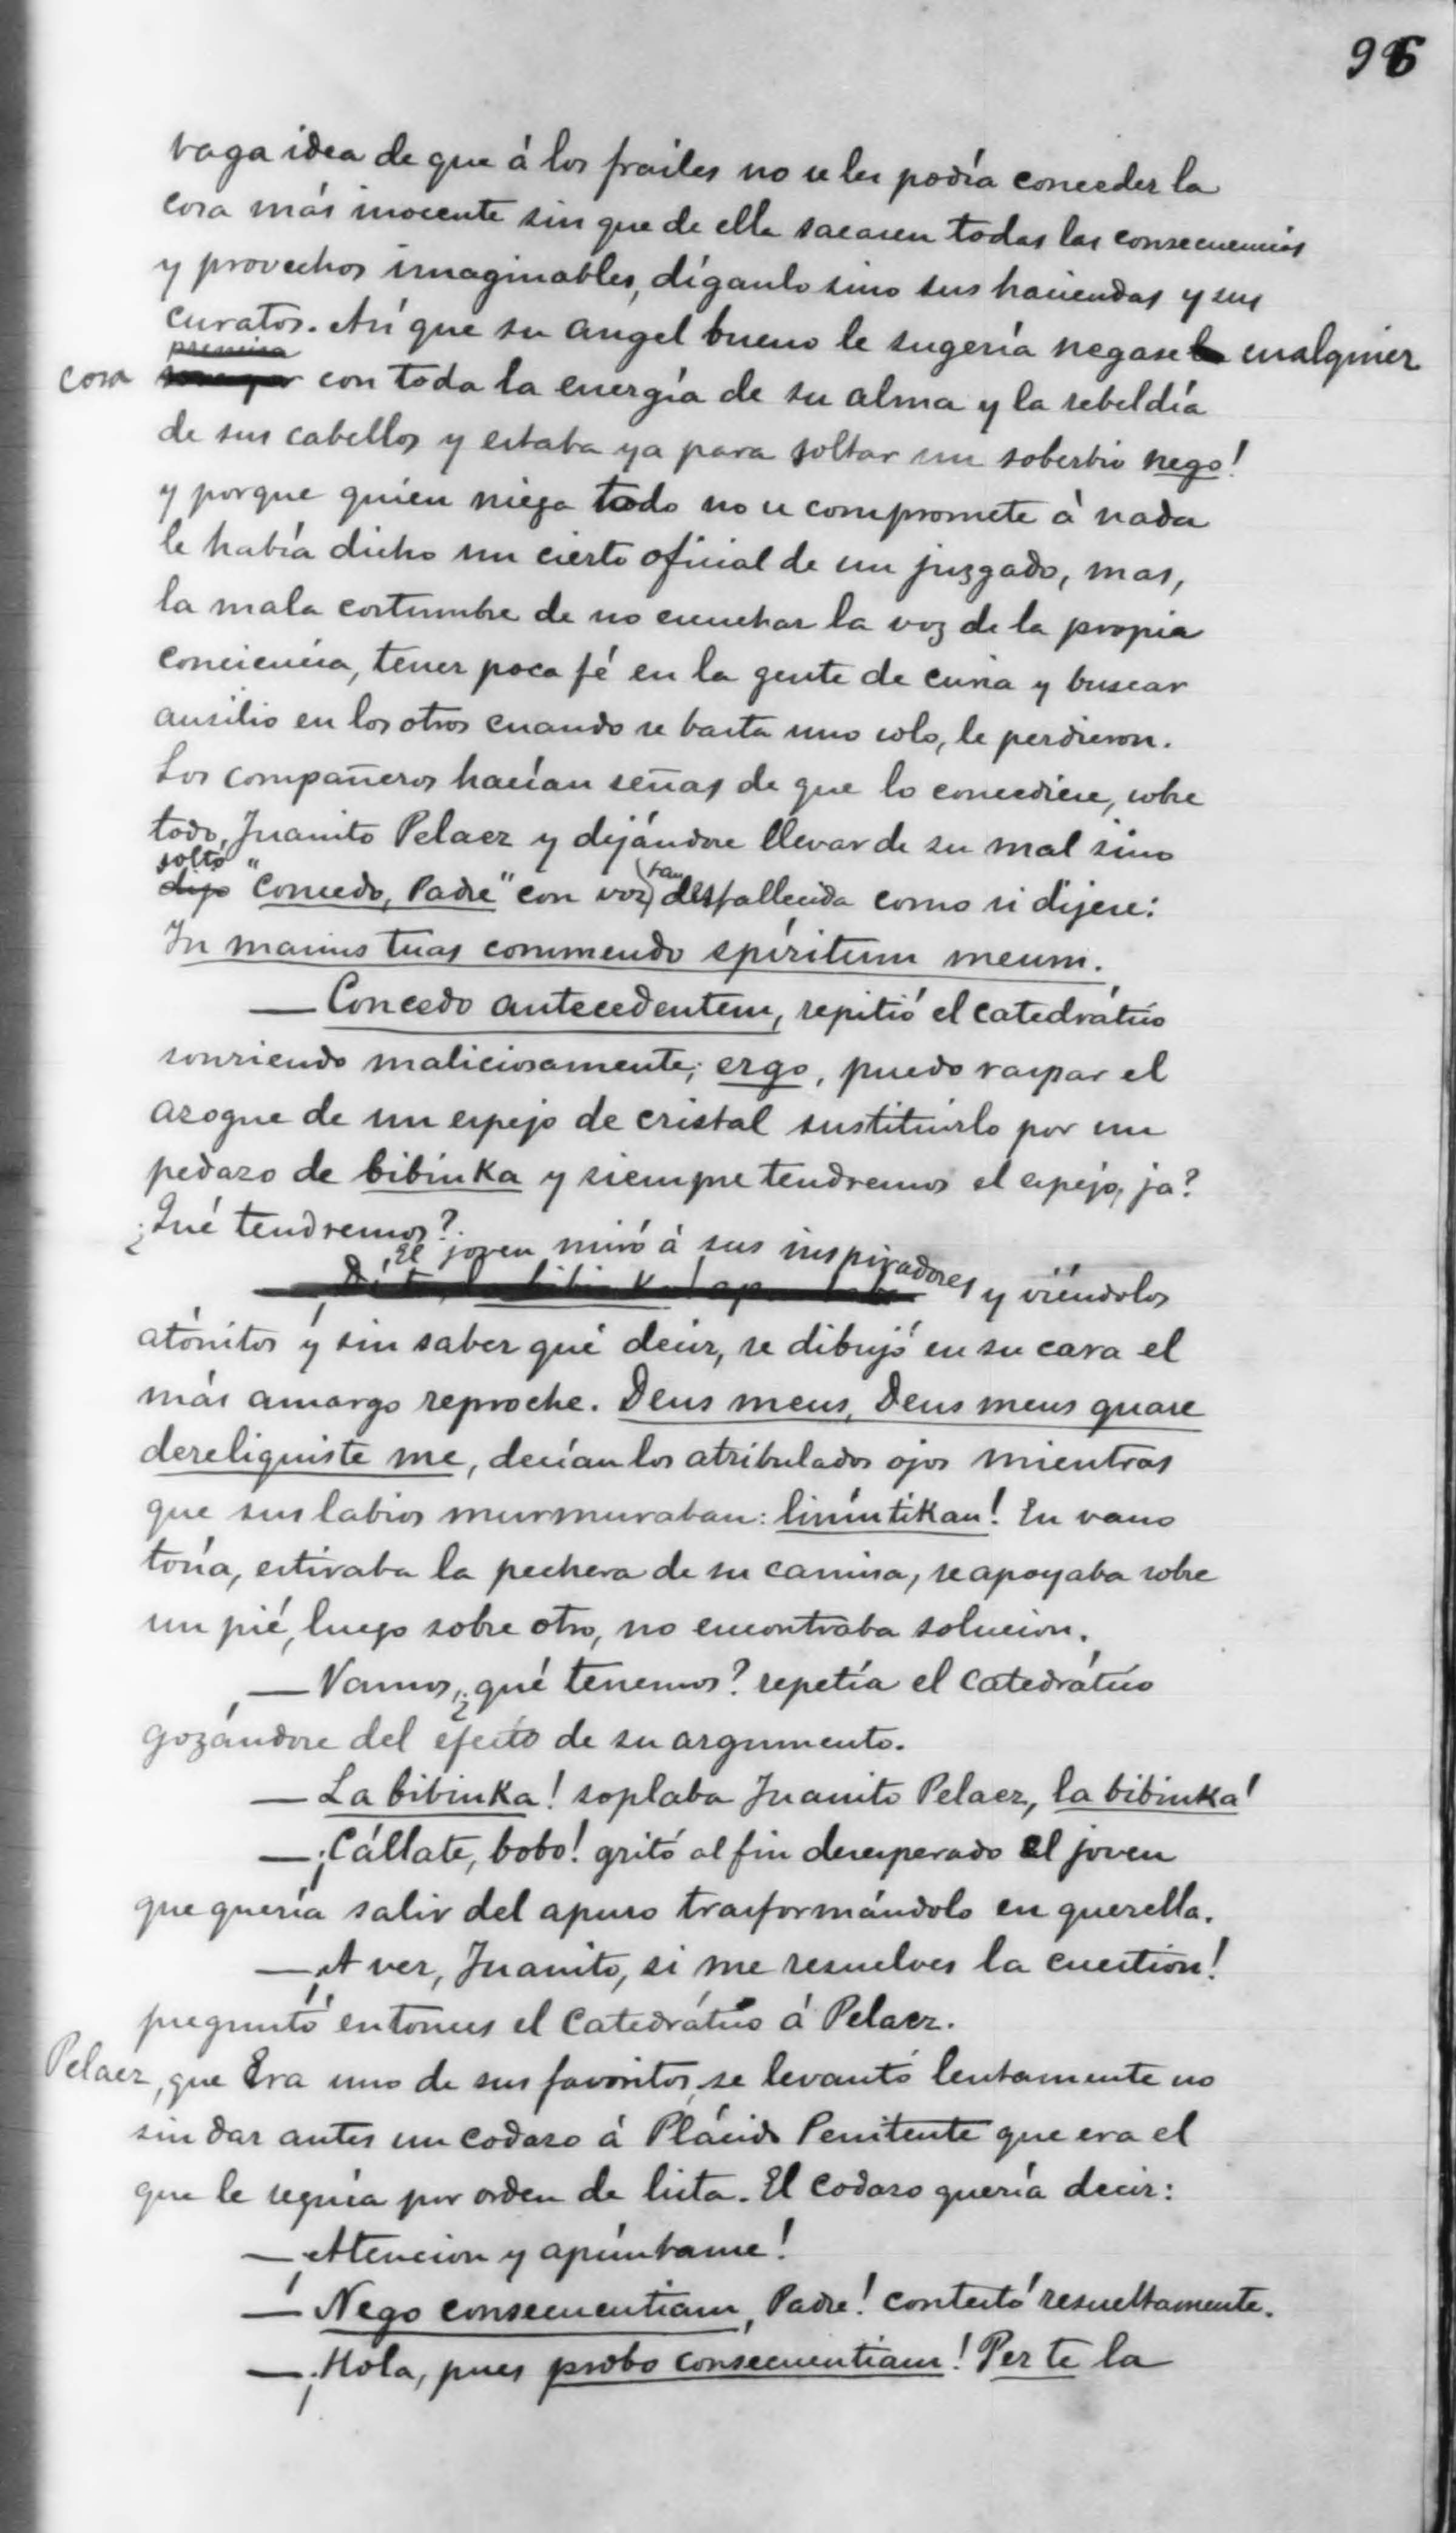 96
vaga idea de que á los frailes no se les podía conceder la
cosa más inocente sin que de ella sacasen todas las consecuencias
y provechos imaginables, díganlo sino sus haciendas y sus
curatos. Así que su angel bueno le sugería negase cualquier
premisa
cosa con toda la energía de su alma y la rebeldía
de sus cabellos y estaba ya para soltar un soberbio nego!
y porque quien niega todo no se compromete á nada
le había dicho un cierto oficial de un juzgado, mas,
la mala costumbre de no escuchar la voz de la propia
conciencia, tener poca fé en la gente de curia y buscar
ausilio en los otros cuando se basta uno solo, le perdieron.
Los compañeros hacían señas de que lo concediese, sobre
todo, Juanito Pelaez y dejándose llevar de su mal sino
soltó
dijo "Concedo, Padre" con voz tan desfallecida como si dijese:
In manus tuas commendo spíritum meum.
— Concedo antecedentem, repitió el catedrático
sonriendo maliciosamente; ergo, puedo raspar el
azogue de un espejo de cristal sustituirlo por un
pedazo de bibinka y siempre tendremos el espejo, ja?
¿Qué tendremos?
El joven miró á sus inspiradores y viéndolos
atónitos y sin saber qué decir, se dibujó en su cara el
más amargo reproche. Deus meus, Deus meus quare
dereliquiste me, decían los atribulados ojos mientras
que sus labios murmuraban: linintikan! En vano
tosía, estiraba la pechera de su camisa, se apoyaba sobre
un pié, luego sobre otro, no encontraba solucion.
— Vamos, ¿qué tenemos? repetía el catedrático
gozándose del efecto de su argumento.
— La bibinka! soplaba Juanito Pelaez, la bibinka!
— ¡Cállate, bobo! gritó al fin desesperado el joven
que quería salir del apuro trasformándolo en querella.
— ¡A ver, Juanito, si me resuelves la cuestion!
preguntó entonces el catedrático á Pelaez.
Pelaez, que era uno de sus favoritos, se levantó lentamente no
sin dar antes un codazo á Plácido Penitente que era el
que le seguía por orden de lista. El codazo quería decir:
— ¡Atencion y apúntame!
— Nego consecuentiam, Padre! contestó resueltamente.
— ¡Hola, pues probo consecuentiam! Per te la